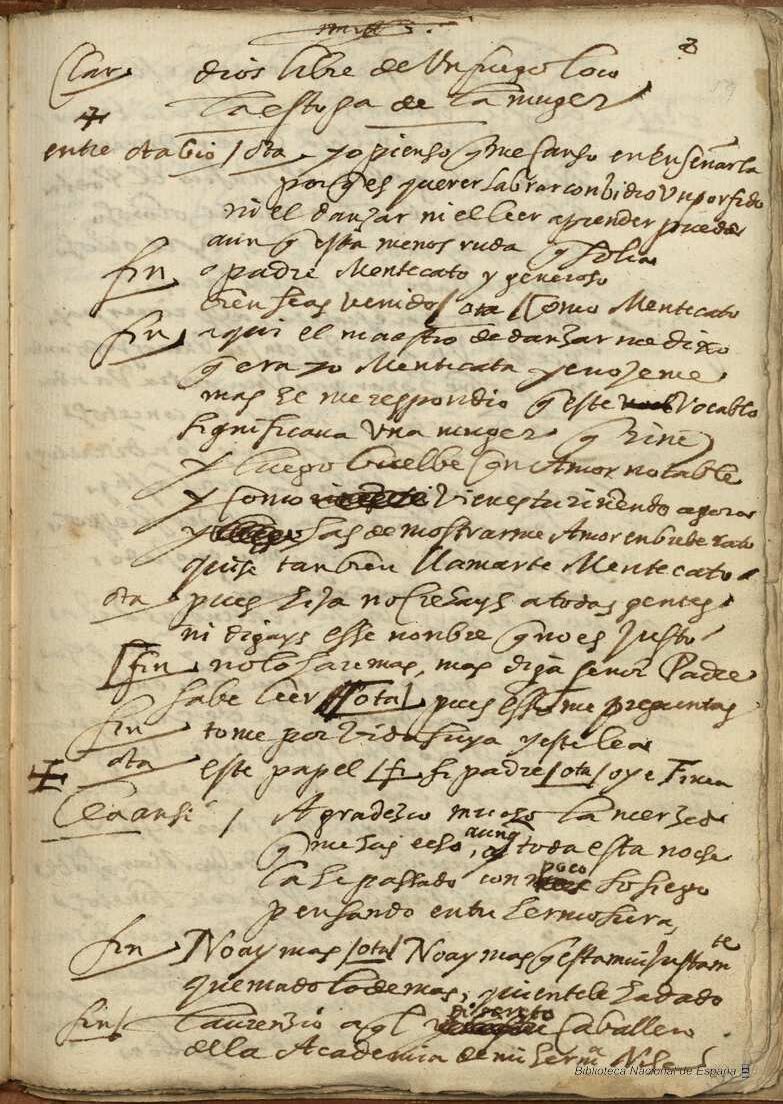 Clar dios libre de Un fuego loco
la estopa de la muger
entre otabio / ota yo pienso q̃ me canso en Enseñarla
porq̃ es querer labrar con bidro Un porfido
ni el danzar ni el leer aprender puede
aunq̃ está menos ruda q̃ solia
fin o padre Mentecato y generoso
bien seas venido / ota / Como Mentecato
fin aqui el maestro de danzar me dixo
q̃ era yo Mentecata y enojeme
mas el me respondio q̃ este Vocablo
significaua Una muger q̃ Riñe
y luego buelbe con Amor notable
y como vienes tu riñendo agora
y has de mostrarme Amor en bube rato
quise tanbien llamarte Mentecato
ota pues hija no creays a todas gentes
ni digays esse nonbre q̃ no es Justo
fin no lo hare mas, mas diga señor Padre
sabe leer / ota / pues esso me preguntas
fin tome por Vida suya y este lea
ota este papel / fi si padre / ota / oye Finea
lea ansi / Agradezco mucho la merced
q̃ me has echo, aunq̃ toda esta noche
la he passado con poco sosiego
pensando en tu hermosura,
fin No ay mas / ota / No ay mas q̃ esta mui Justamte
quemado lo demas, quien te le ha dado
fin / Laurenzio aql discreto Caballero
de lla Academia de mi hermª Nise
Biblioteca Nacional de España